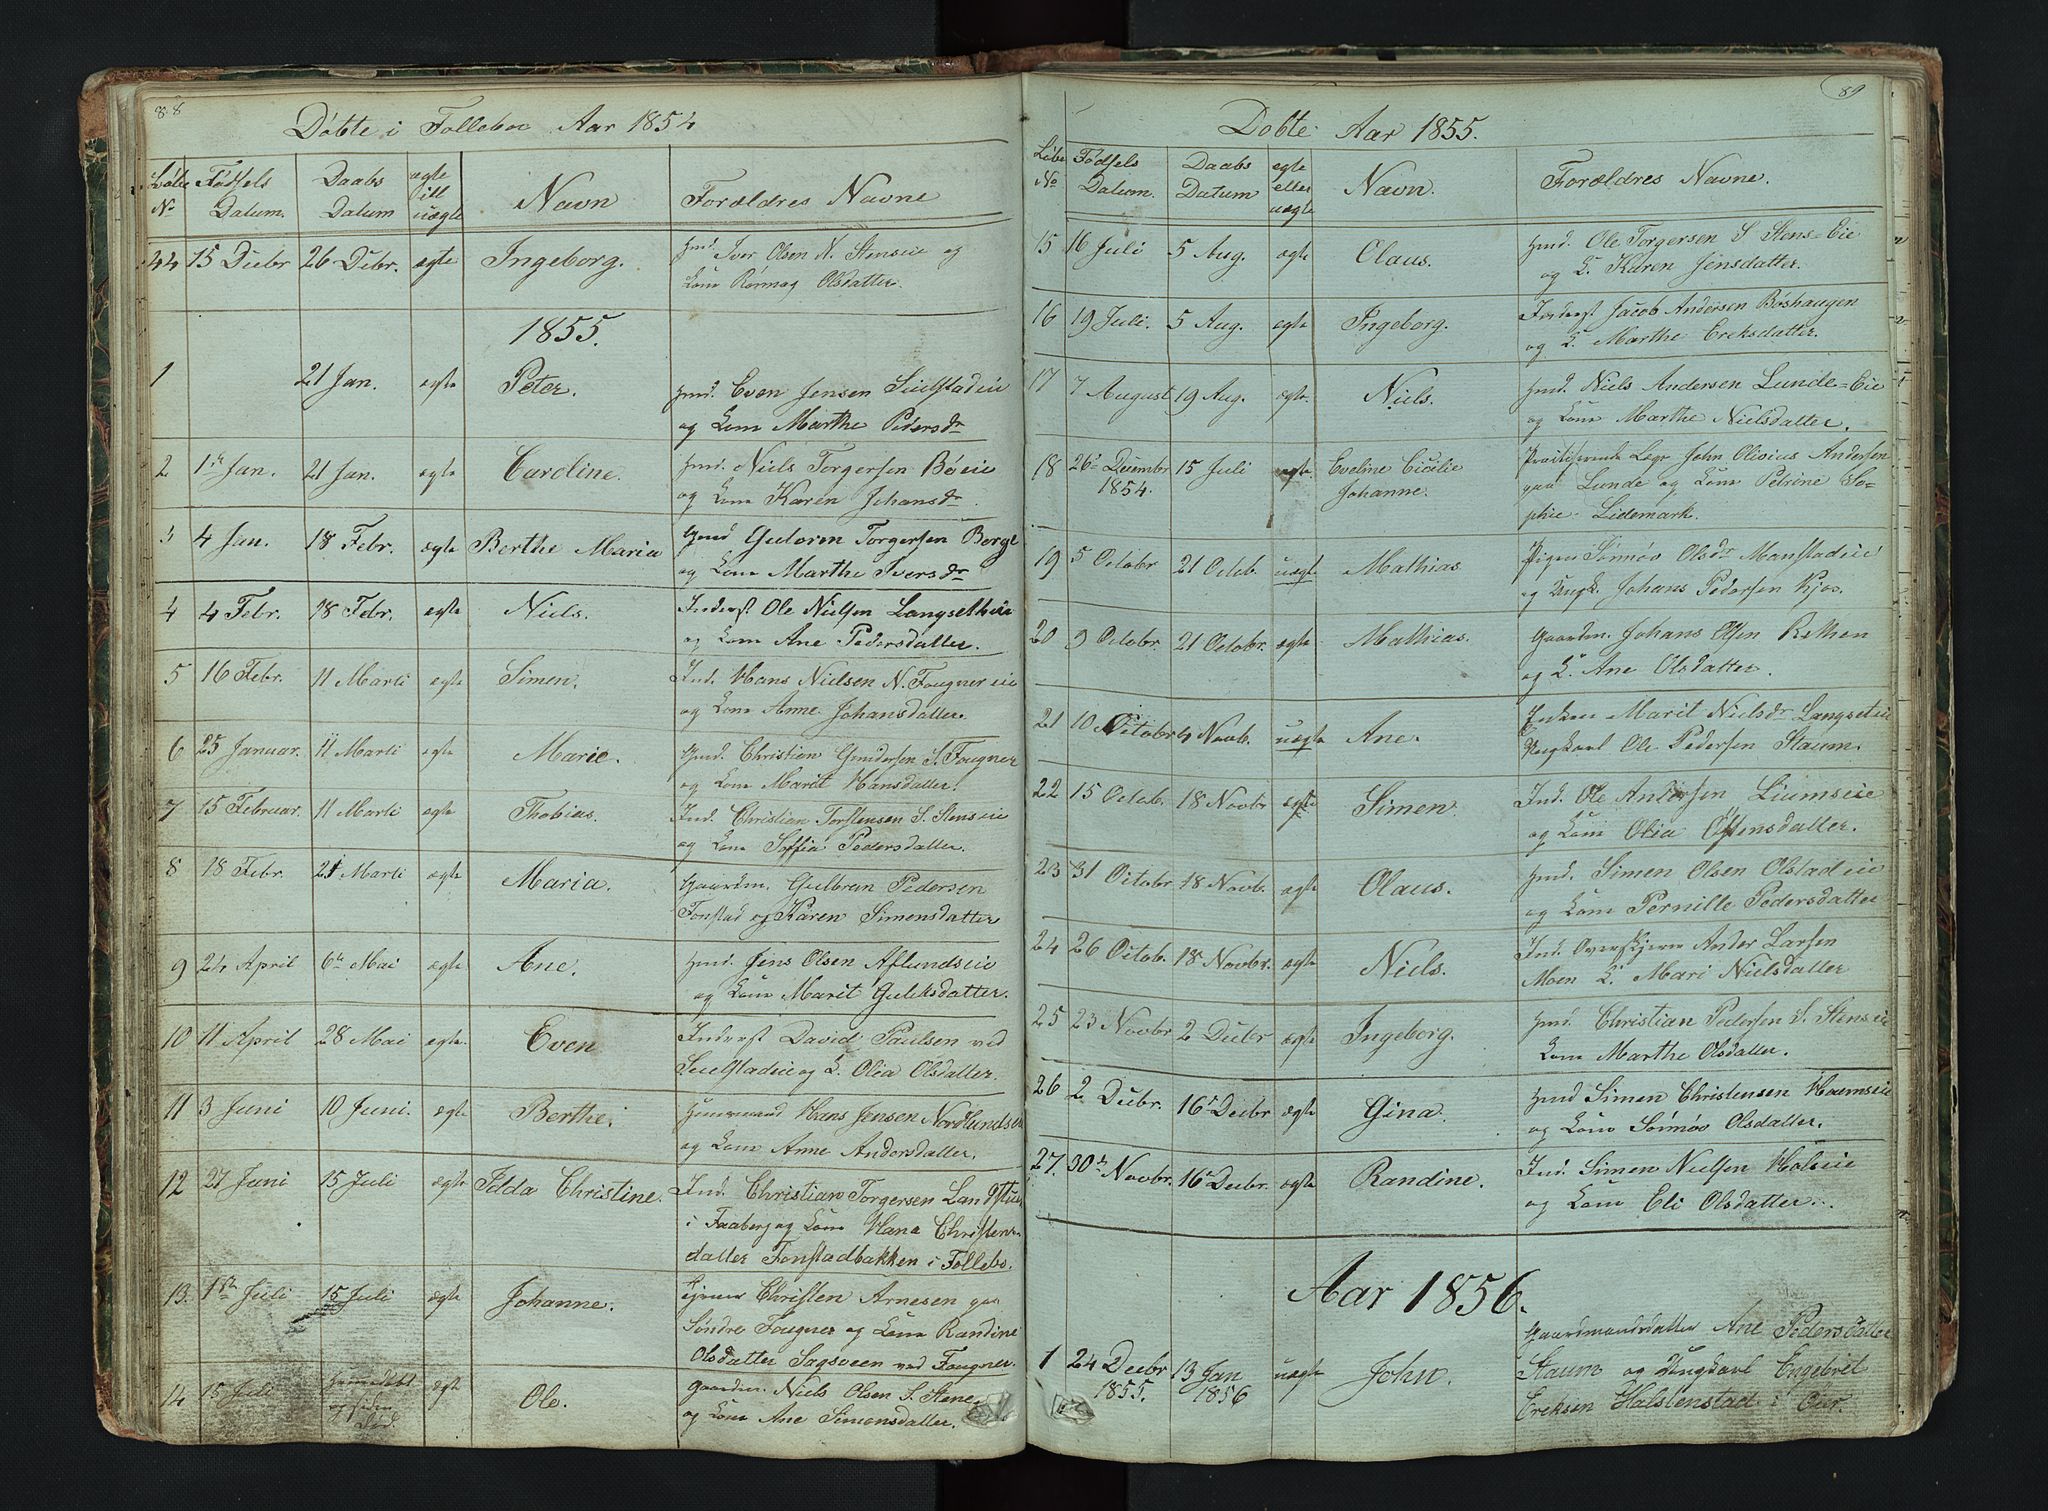 88
Döbte i Follebo Aar 1854
Löbe No Födsels Datum. Daabs Datum ægte ell uægte Navn Forældres Navne
44 15 Decbr 26 Debr. ægte Ingeborg. Hmd. Iver Olsen N. Stenseie og
Kone Rönnog Olsdatter.
1855.
1 21 Jan. ægte Peter. Hmd. Even Jensen Suelstadeie
og Kone Marthe Pedersdr
2 1ste Jan. 21 Jan. ægte Caroline. Hmd. Niels Torgersen Böeie
og Kone Karen Johansdr
3 4 Jan. 18 Febr. ægte Berthe Maria Gmd Gulorm Torgersen Berge
og Kone Marthe Iversdr
4 4 Febr. 18 Febr. ægte Niels. Inderst Ole Nielsen Langsetheie
og Kone Ane Pedersdatter.
5 16 Febr. 11 Marti ægte Simen. Ind. Hans Nielsen N. Fougner eie
og Kone Anne Johansdatter.
6 25 Januar. 11 Marti ægte Marie. Hmd. Christian Gundersen S. Fougner
og Kone Marit Hansdatter.
7 15 Februar. 11 Marti ægte Thobias. Ind. Christian Torstensen S. Stenseie
og Kone Soffia Pedersdatter.
8 18 Febr. 21 Marti ægte Maria. Gaardm. Gulbran Pedersen
Fonstad og Karen Simensdatter
9 24 April 6te Mai ægte Ane. Hmd. Jens Olsen Aflundseie
og Kone Marit Guliksdatter.
10 11 April 28 Mai ægte. Even Inderst David Paulsen ved
Suelstadeie og K. Olea Olsdatter.
11 3 Juni 10 Juni. ægte Berthe. Huusmand Hans Jensen Nordlundsei
og Kone Anne Andersdatter.
12 27 Juni 15 Juli ægte Idda Christine. Ind. Christian Torgersen
i Faaberg og Kone Hana Christens-
datter Fonstadbakken i Follebo.
13. 1ste Juli 15 Juli ægte Johanne. Christen Arnesen paa
Söndre Fougner og Kone Randine
Olsdatter Sagsveen ved Fougner.
14 15 Juli hjemedøbt og siden død. ægt Ole. Gaardm. Niels Olsen S. Stene
og Kone Ane Simensdatter.
89
Döbte Aar 1855.
Löbe No Födsels Datum. Daabs Datum ægte eller uægte Navn. Forældres Navne.
15 16 Juli 5 Aug. ægte Olaus. Hmd. Ole Torgersen S Stens=Eie
og K. Karen Jensdatter.
16 19 Juli. 5 Aug. ægte Ingeborg. Inderst Jacob Andersen Böshaugen
og K. Marthe Ereksdatter.
17 7 August 19 Aug. ægte. Niels. Hmd. Niels Andersen Lunde=Eie
og Kone Marthe Nielsdatter.
18 26 Decembr 1854. 15 Juli ægte. Eveline Cicilie Johanne. Practiserende Læge John Olivius Andersen
paa Lunde og Kone Petrine So=
phie Lidemark.
19 5 Octobr 21 Octob. uægte Mathias Pigen Rönnov Olsdr Manstadeie
og Ungk. Johans Pedersen Kjos.
20 9 Octobr. 21 Octobr. ægte Mathias. Gaardm. Johans Olsen Rethen
og K. Ane Olsdatter.
21 10 Octobr 4 Novb. uægte Ane. Enken Marit Nielsdr Langseteie
Ungkarl Ole Pedersen Staum.
22 15 Octob. 18 Novbr ægte Simen. Ind. Ole Andersen Liumseie
og Kone Olia Östensdatter.
23 31 Octobr 18 Novb. ægte Olaus. Hmd. Simen Olsen Olstadeie
og Kone Pernille Pedersdatter
24 26 Octob. 18 Novbr. ægte Niels. Ind. Overskjerer Ander Larsen
Moen K. Mari Nielsdatter
25 23 Novbr 2 Decbr ægte Ingeborg. Hmd. Christian Pedersen S. Stenseie
Kone Marthe Olsdatter.
26 2 Decbr. 16 Decbr ægte Gina. Hmd Simen Christensen Hoemseie
og Kone Rönnöv Olsdatter.
27. 30te Novbr. 16 Decbr. ægte Randine. Ind. Simen Nielsen Holseie
og Kone Eli Olsdatter.
Aar 1856.
1 24 Decbr 1855. 13 Jan 1856 uægte John. Gaardmandsdatter Ane Pedersdatter
Staum og Ungkarl Engebret
Ereksen Halstenstad i Öier.